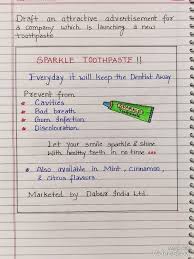 Draft an attractive advertisement for
a company which is launching a new
toothpaste
SPARKLE TOOTHPASTE !!
Everyday it will keep the Dentist Away
Prevent from
• Cavities
• Bad breath
• Gum Infection
• Discolouration
Let your smile sparkle & shine
with healthy teeth in no time ...
• Also available in Mint, cinnamon,
& citrus flavours
Marketed by Dabur India Ltd.